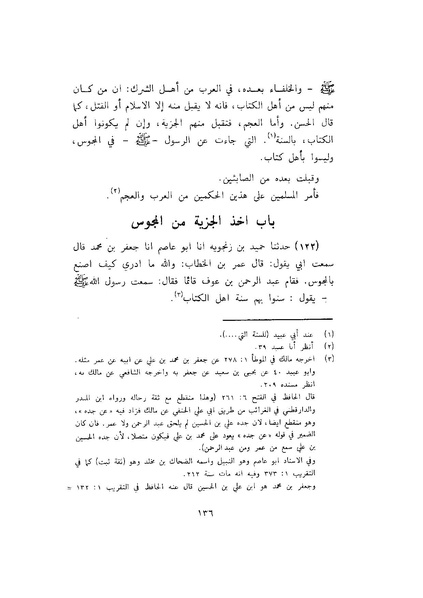 ﷺ - والخلفاء بعده، في العرب من أهل الشرك: ان من كان
منهم ليس من أهل الكتاب، فانه لا يقبل منه إلا الاسلام أو القتل، كما
قال الحسن. وأما العجم، فتقبل منهم الجزية، وإن لم يكونوا أهل
الكتاب، بالسنة(١). التي جاءت عن الرسول - ﷺ - في المجوس،
وليسوا بأهل كتاب.
وقبلت بعده من الصابئين.
فأمر المسلمين على هذين الحكمين من العرب والعجم(٢).
باب اخذ الجزية من المجوس
(١٢٢) حدثنا حميد بن زنجويه انا ابو عاصم انا جعفر بن محمد قال
سمعت ابي يقول: قال عمر بن الخطاب: والله ما ادري كيف اصنع
بالمجوس. فقام عبد الرحمن بن عوف قائما فقال: سمعت رسول الله ﷺ
- يقول: سنوا بهم سنة اهل الكتاب(٣).
(١) عند أبي عبيد (للسنة التي....).
(٢) أنظر أبا عبيد ٣٩.
(٣) اخرجه مالك في الموطأ ١: ٢٧٨ عن جعفر بن محمد بن علي عن ابيه عن عمر مثله.
وابو عبيد ٤٠ عن يحيى بن سعيد عن جعفر به واخرجه الشافعي عن مالك به،
انظر مسنده ٢٠٩.
قال الحافظ في الفتح ٦: ٢٦١ (وهذا منقطع مع ثقة رجاله ورواه ابن المنذر
والدارقطني في الغرائب من طريق ابي علي الحنفي عن مالك فزاد فيه «عن جده»،
وهو منقطع ايضا، لان جده علي بن الحسين لم يلحق عبد الرحمن ولا عمر. فان كان
الضمير في قوله «عن جده» يعود على محمد بن علي فيكون متصلا، لأن جده الحسين
بن علي سمع من عمر ومن عبد الرحمن).
وفي الاسناد ابو عاصم وهو النبيل واسمه الضحاك بن مخلد وهو (ثقة ثبت) كما في
التقريب ١: ٣٧٣ وفيه انه مات سنة ٢١٢.
وجعفر بن محمد هو ابن علي بن الحسين قال عنه الحافظ في التقريب ١: ١٣٢ =
١٣٦